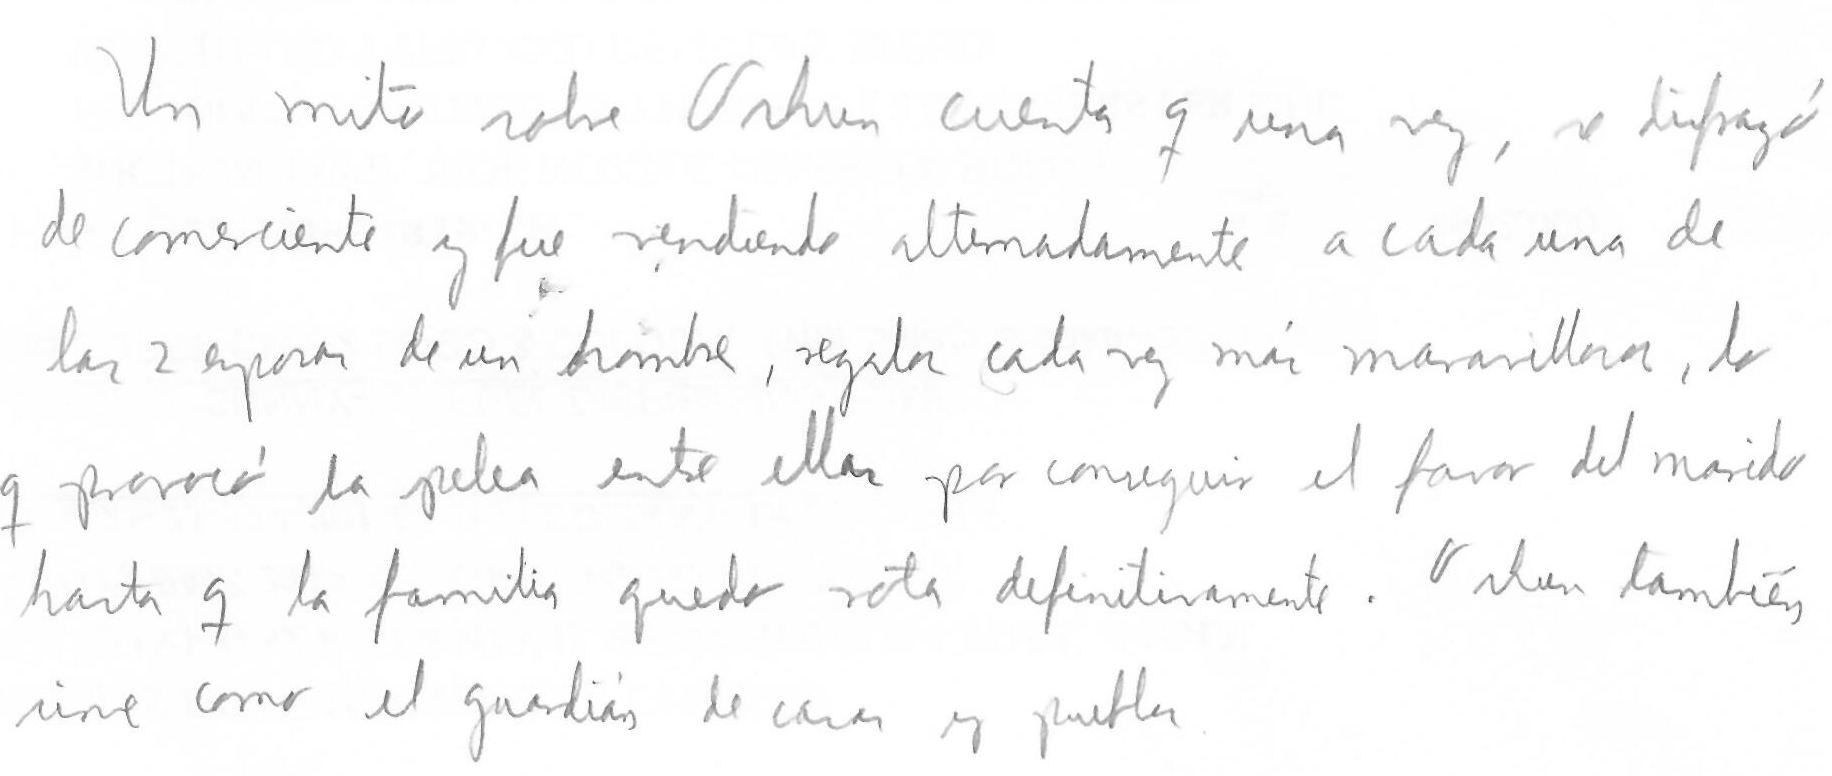 Un mito sobre Oshun cuenta q una vez, se disfrazó
de comerciente y fue vendiendo alternadamente a cada una de
las 2 esposas de un hombre, regalos cada vez más maravillosos, lo
q provocó la pelea entre ellas por conseguir el favor del marido
hasta q la familia quedo rota definitivamente. Oshun también
sirve como el guardián de casas y pueblos.